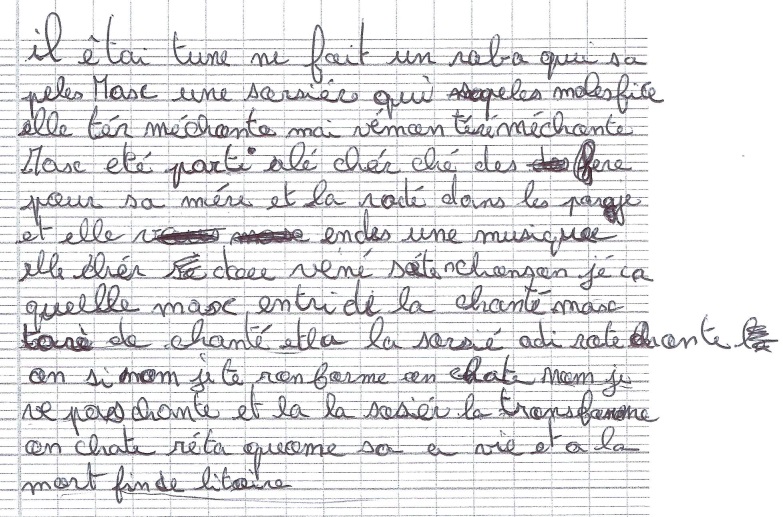 il êtai tune ne fait un raba qui sa
peles Masc une sorsiér qui sapeles malesfice
elle tér méchante mai rémæn térémechante
Masc eté parti alé chér ché des fere
pour sa mére et la rodé dans les parage
et elle endes une musique
elle éhér doee véné séte chansan jé ca
quelle masc entri di la chanté masc
taré de chanté et la la sorsié adi rote chante
on si mom je te ronforme on chate mom je
ve pas chante et la la sosiér la transforme
on chate réta queome sa a vie et a la
mort fin de litoire